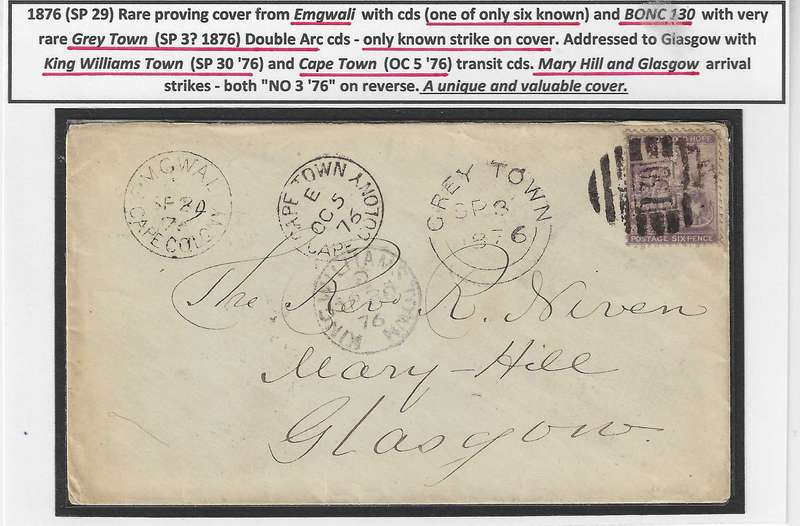 1876 (SP 29) Rare proving cover from Emgwali with cds (one of only six known) and BONC 130 with very
rare Grey Town (SP 3? 1876) Double Arc cds - only known strike on cover. Addressed to Glasgow with
King Williams Town (SP 30 '76) and Cape Town (OC 5 '76) transit cds. Mary Hill and Glasgow arrival
strikes - both "NO 3 '76" on reverse. A unique and valuable cover.
EMGWALI
SP 29
76
CAPE COLONY
CAPE TOWN
E
OC 5
76
CAPE COLONY
GREY TOWN
SP 3
1876
130
POSTAGE SIX PENCE
KING WILLIAMS TOWN
76
The Revd R. Niven
Mary-Hill
Glasgow.